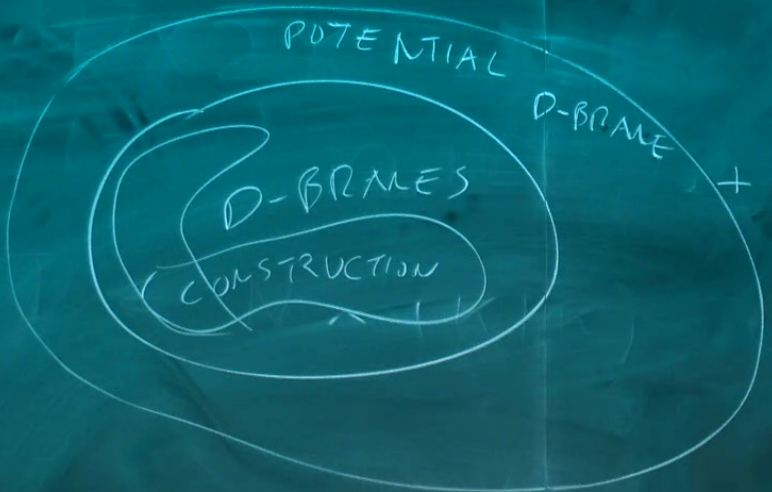 POTENTIAL
D-BRANE
+
D-BRANES
CONSTRUCTION